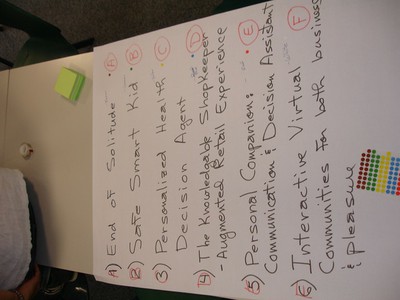 1) End of Solitude · (A)
2) Safe Smart Kid · (B)
3) Personalized Health · (C)
Decision Agent
4) The Knowledgable Shopkeeper · (D)
- Augmented Retail Experience
5) Personal Companion: · (E)
Communication & Decision Assistant
6) Interactive Virtual (F)
Communities for both business
& pleasure